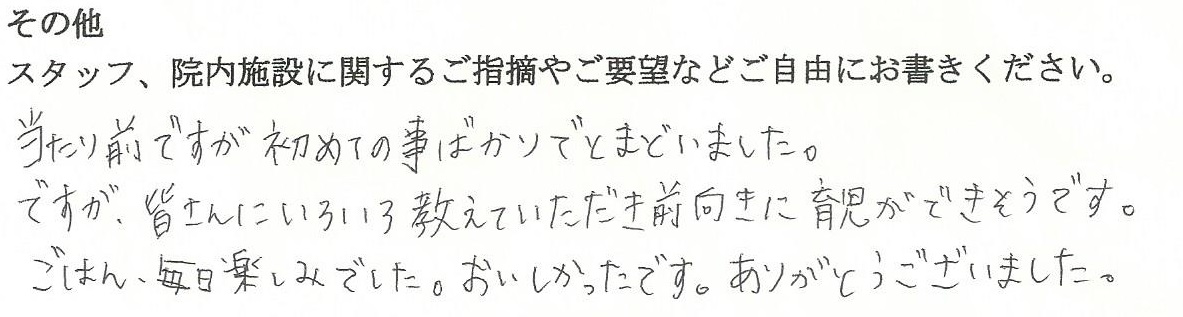 その他
スタッフ、院内施設に関するご指摘やご要望などご自由にお書きください。
当たり前ですが初めての事ばかりでとまどいました。
ですが、皆さんにいろいろ教えていただき前向きに育児ができそうです。
ごはん、毎日楽しみでした。おいしかったです。ありがとうございました。